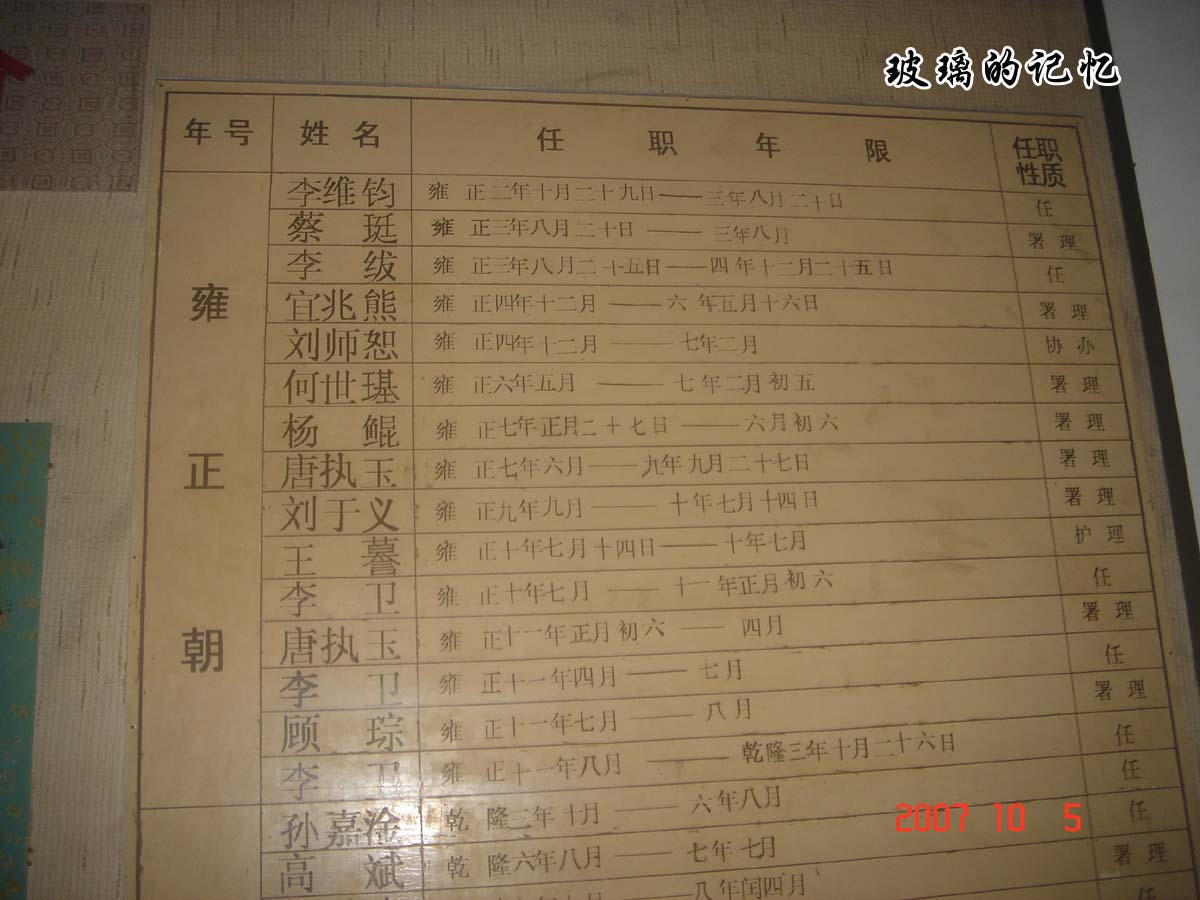 玻璃的记忆
年号 姓名 任职年限 任职性质
雍正朝
李维钧 雍正二年十月二十九日——三年八月二十日 任
蔡珽 雍正三年八月二十日——三年八月 署理
李绂 雍正三年八月二十五日——四年十二月二十五日 任
宜兆熊 雍正四年十二月——六年五月十六日 署理
刘师恕 雍正四年十二月——七年二月 协办
何世璂 雍正六年五月——七年二月初五 署理
杨鲲 雍正七年正月二十七日——六月初六 署理
唐执玉 雍正七年六月——九年九月二十七日 署理
刘于义 雍正九年九月——十年七月十四日 署理
王謩 雍正十年七月十四日——十年七月 护理
李卫 雍正十年七月——十一年正月初六 任
唐执玉 雍正十一年正月初六——四月 署理
李卫 雍正十一年四月——七月 任
顾琮 雍正十一年七月——八月 署理
李卫 雍正十一年八月——乾隆三年十月二十六日 任
孙嘉淦 乾隆三年十月——六年八月 任
高斌 乾隆六年八月——七年七月 任
八年闰四月 署理
任
2007 10 5